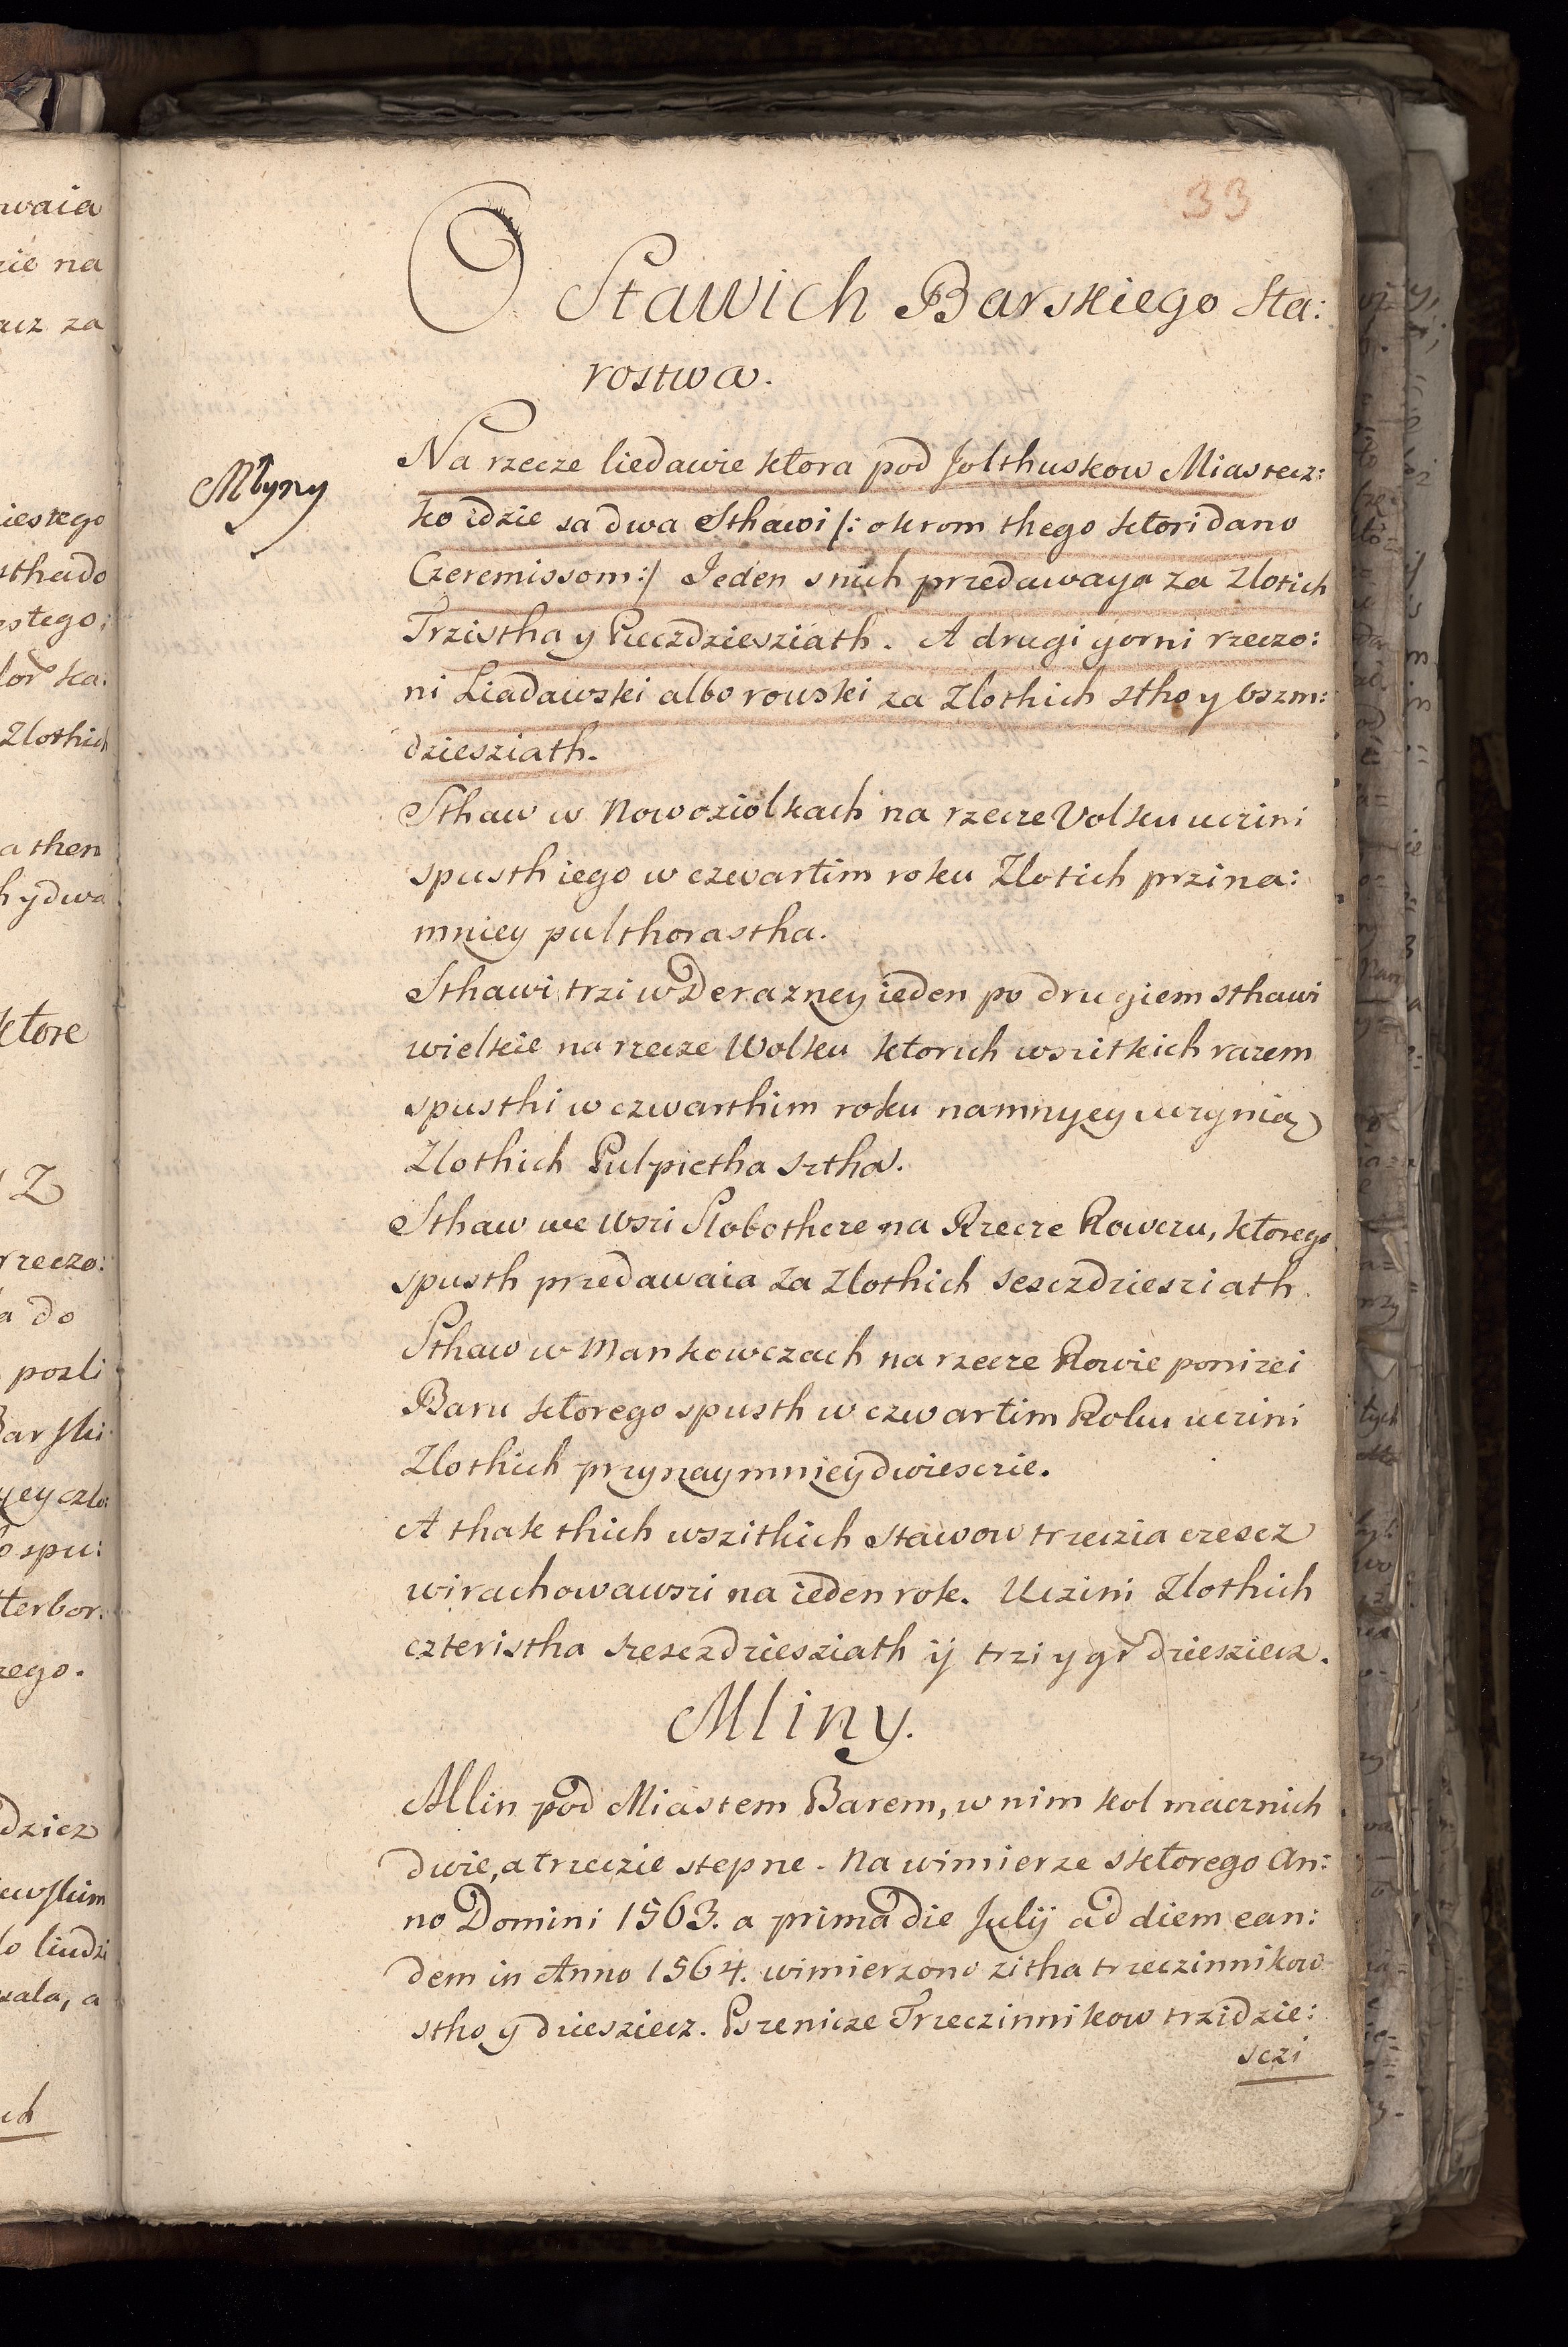 33
O Stawich Barskiego Sta:
rostwa.
Młyny
Na rzecze liedawie ktora pod Jolthuskow Miastecz:
ko idzie sa dwa Sthawi /: okrom thego ktori dano
Czeremissom:/ Jeden snich przedawaya za Zlotich
Trzistha y Pieczdziesziath. A drugi gorni rzeczo:
ni Liadawski albo rowski za Zlothich stho y oszm:
dziesziath.
Sthaw w Nowoziolkach na rzecze Volku uczini
spusth iego w czwartim roku Zlotich przina:
mniey pulthorastha.
Sthawi trzi w Derazney ieden po drugiem sthawi
wielkie na rzecze Wolku ktorich wszitkich razem
spusthi w czwarthim roku namnyey uczynia
Zlothich Pulpietha sztha.
Sthaw we wszi Slobothcze na Rzecze Rowczu, ktorego
spusth przedawaia za Zlothich sesczdziesziath.
Sthaw w Mankowczach na rzecze Rowie ponizei
Baru ktorego spusth w czwartim Roku uczini
Zlothich przynaymniey dwiesczie.
A thak thich wszitkich stawow trzeczia czescz
wirachowawszi na ieden rok. Uczini Zlothich
czteristha szesczdziesziath ij trzi y gr dziesziecz.
Mliny.
Mlin pod Miastem Barem, w nim kol macznich
dwie, a trzeczie stepne. Na wimierze sktorego An:
no Domini 1563. a prima die Julij ad diem ean:
dem in Anno 1564. wimierzono zitha trzeczinnikow
stho y dziesziecz. Pszenicze Trzeczinnikow trzidzie:
sczi